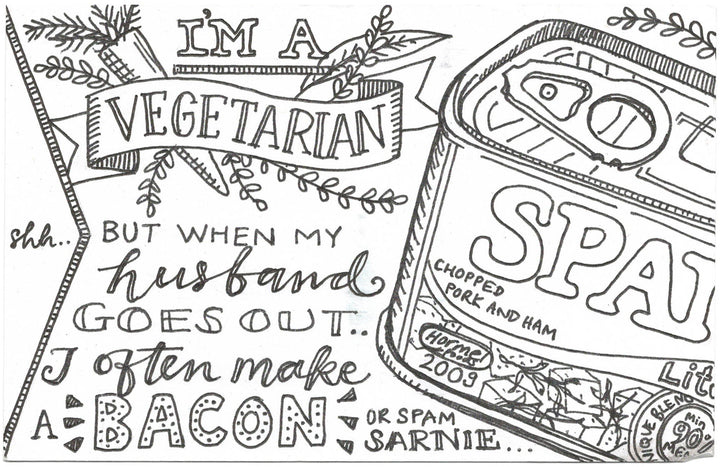 I'M A
VEGETARIAN
shh..
BUT WHEN MY
husband
GOES OUT..
I often make
A BACON
OR SPAM
SARNIE...
SPA
CHOPPED
PORK AND HAM
Hormel
2009
Lit
NIQUE BLEND
MIN
90%